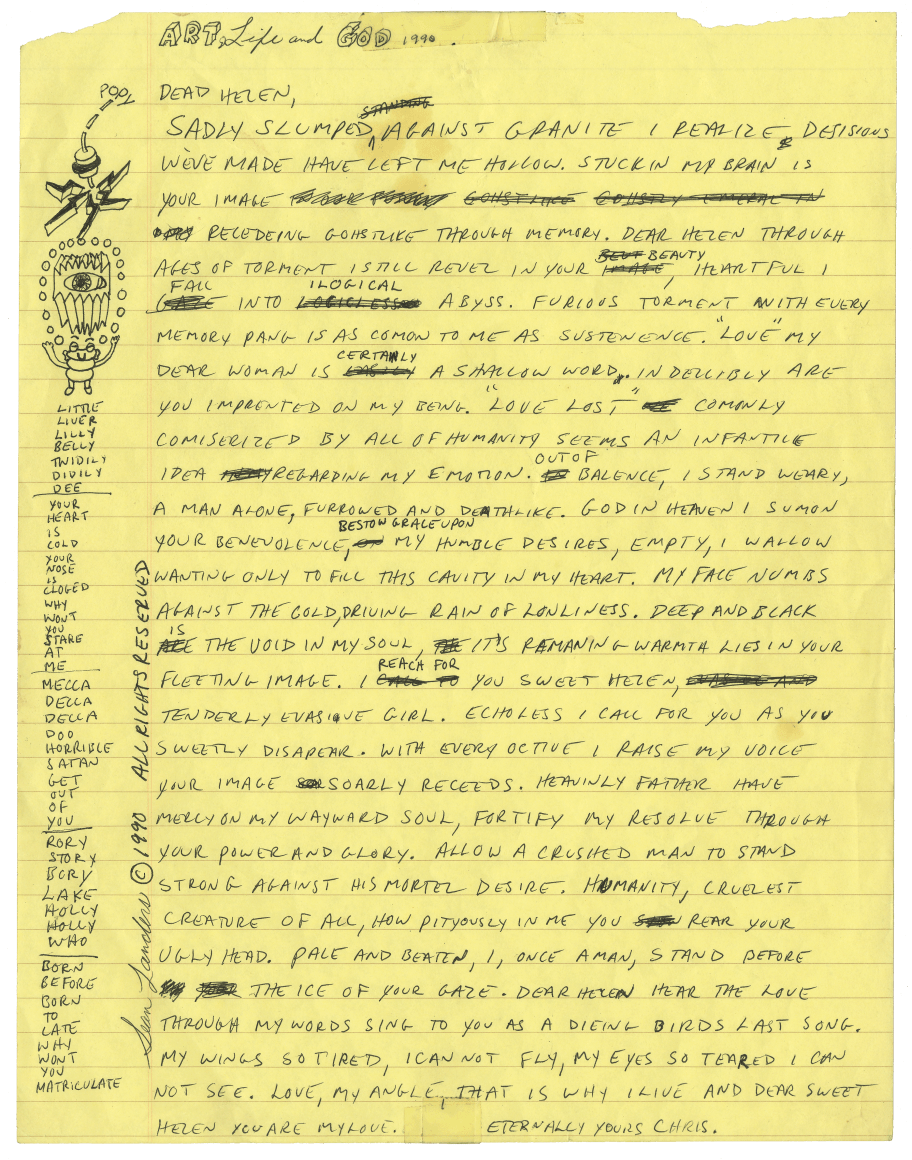 ART, Life and GOD 1990.
POP!
DEAD HELEN,
STANDING
SADLY SLUMPED, AGAINST GRANITE I REALIZE DESISIONS
WEVE MADE HAVE LEFT ME HOLLOW. STUCK IN MY BRAIN IS
YOUR IMAGE GOHSTLIKE GOHSTLY EMERAL IN
RECEDEING GOHSTLIKE THROUGH MEMORY. DEAR HELEN THROUGH
BEUT BEAUTY
AGES OF TORMENT I STILL REVEL IN YOUR IMAGE, HEARTFUL I
FALL ILOGICAL
GAZE INTO LOGICLESS ABYSS. FURIOUS TORMENT WITH EVERY
MEMORY PANG IS AS COMON TO ME AS SUSTENENCE. "LOVE" MY
CERTAINLY
DEAR WOMAN IS EASILY A SHALLOW WORD. INDELLIBLY ARE
YOU IMPRENTED ON MY BEING. "LOVE LOST" COMONLY
COMISERIZED BY ALL OF HUMANITY SEEMS AN INFANTILE
OUT OF
IDEA REGARDING MY EMOTION. IN BALENCE, I STAND WEARY,
A MAN ALONE, FURROWED AND DEATHLIKE. GOD IN HEAVEN I SUMON
BESTOW GRACE UPON
YOUR BENEVOLENCE, ON MY HUMBLE DESIRES, EMPTY, I WALLOW
WANTING ONLY TO FILL THIS CAVITY IN MY HEART. MY FACE NUMBS
AGAINST THE COLD, DRIVING RAIN OF LONLINESS. DEEP AND BLACK
IS
ARE THE VOID IN MY SOUL, THE IT'S REMANING WARMTH LIES IN YOUR
REACH FOR
FLEETING IMAGE. I CALL TO YOU SWEET HELEN, EVASIVE AND
TENDERLY EVASIVE GIRL. ECHOLESS I CALL FOR YOU AS YOU
SWEETLY DISAPEAR. WITH EVERY OCTIVE I RAISE MY VOICE
YOUR IMAGE SOARLY RECEEDS. HEAVINLY FATHER HAVE
MERCY ON MY WAYWARD SOUL, FORTIFY MY RESOLVE THROUGH
YOUR POWER AND GLORY. ALLOW A CRUSHED MAN TO STAND
STRONG AGAINST HIS MORTEL DESIRE. HUMANITY, CRUELEST
CREATURE OF ALL, HOW PITYOUSLY IN ME YOU REAR YOUR
UGLY HEAD. PALE AND BEATEN, I, ONCE A MAN, STAND BEFORE
THE ICE OF YOUR GAZE. DEAR HELEN HEAR THE LOVE
THROUGH MY WORDS SING TO YOU AS A DIEING BIRDS LAST SONG.
MY WINGS SO TIRED, I CAN NOT FLY, MY EYES SO TEARED I CAN
NOT SEE. LOVE, MY ANGLE, THAT IS WHY I LIVE AND DEAR SWEET
HELEN YOU ARE MY LOVE. ETERNALLY YOURS CHRIS.
LITTLE
LIVER
LILLY
BELLY
TWIDILY
DIDILY
DEE
YOUR
HEART
IS
COLD
YOUR
NOSE
IS
CLOGED
WHY
WONT
YOU
STARE
AT
ME
MECCA
DELLA
DELLA
DOO
HORRIBLE
SATAN
GET
OUT
OF
YOU
RORY
STORY
BORY
LAKE
HOLLY
HOLLY
WHO
BORN
BEFORE
BORN
TO
LATE
WHY
WONT
YOU
MATRICULATE
Sean Landers © 1990 ALL RIGHTS RESERVED